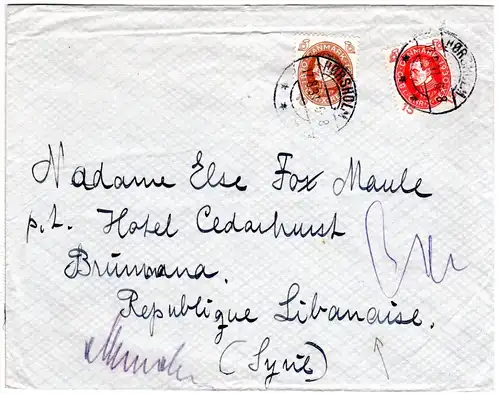 DANMARK
HØRSHOLM
DANMARK
15
HØRSHOLM
Madame Else Fox Maule
p.t. Hotel Cedarhurst
Brümana.
Republique Libanaise.
(Syrie)